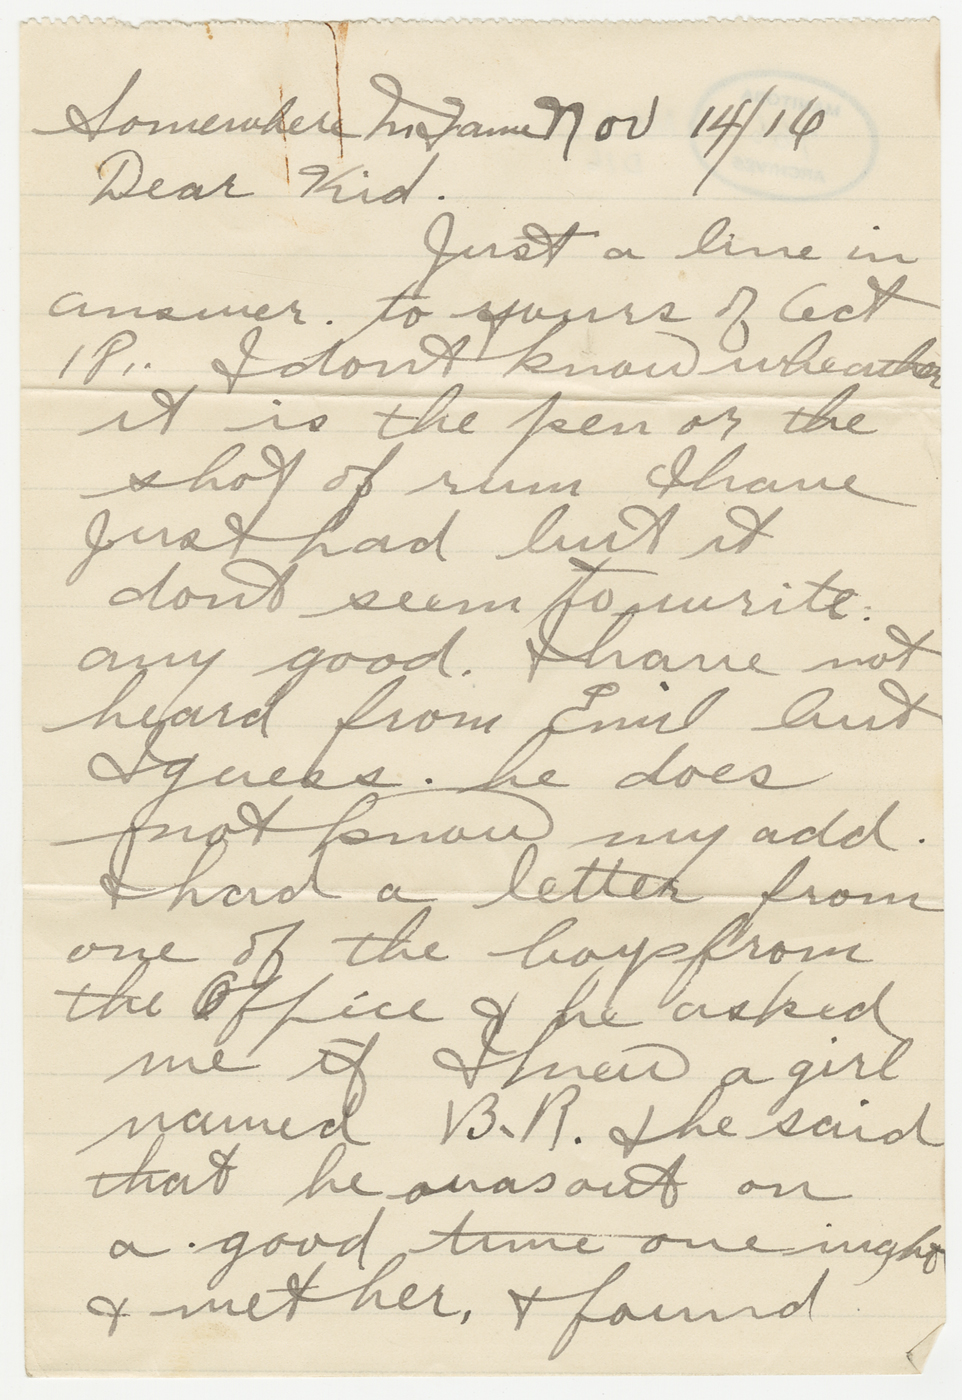 Somewhere In France Nov 14/16
Dear Kid.
Just a line in
answer. to yours of Oct
18,. I dont know wheather
it is the pen or the
shot of rum I have
Just had but it
dont seem to write.
any good. I have not
heard from Emil but
I guess. he does
not know my add.
I had a letter from
one of the boys from
the Office & he asked
me if I knew a girl
named B.R. & he said
that he was out on
a good time one night
& met her, & found